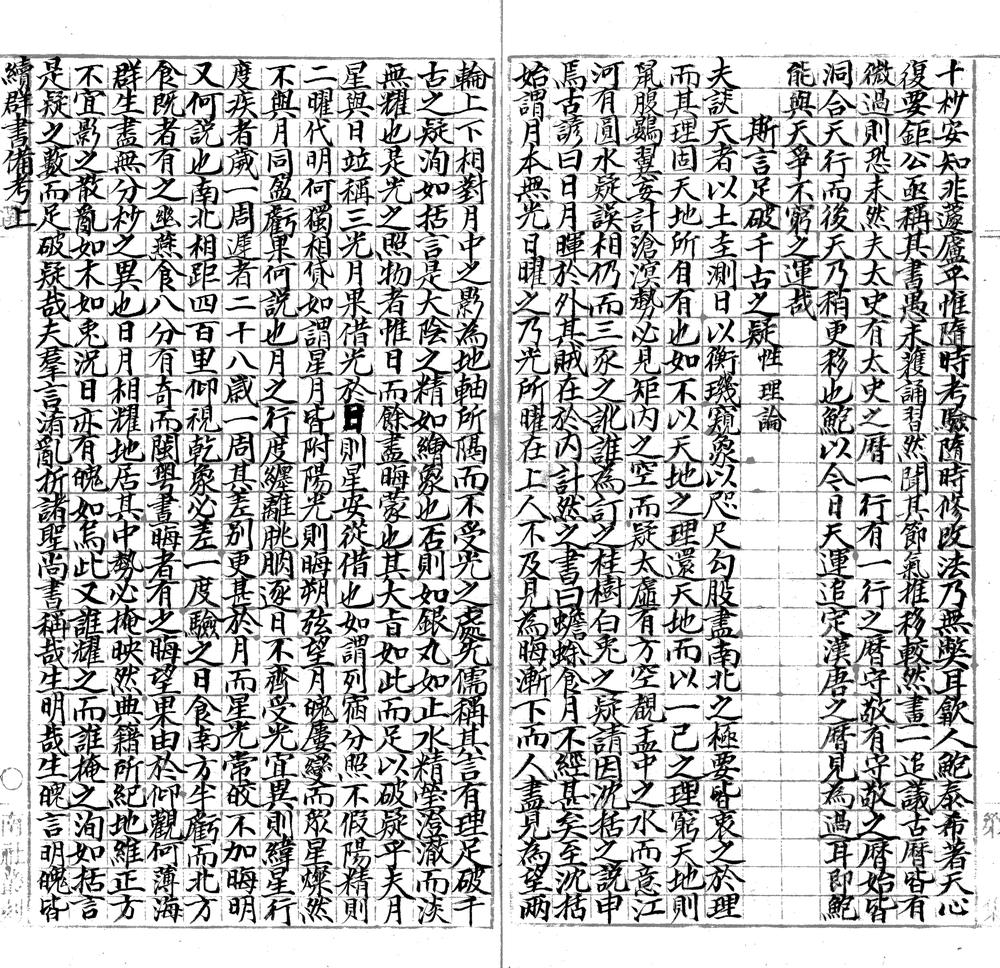 十杪安知非蘧廬乎惟隨時考驗隨時修改法乃無獘耳歙人鮑泰希著天心
復要鉅公亟稱其書愚未獲誦習然聞其節氣推移較然畫一追議古曆皆有
微過則恐未然夫太史有太史之曆一行有一行之曆守敬有守敬之曆始皆
洞合天行而後天乃稍更移也鮑以今日天運追定漢唐之曆見為過耳即鮑
能與天爭不窮之運哉
斯言足破千古之疑 性理論
夫談天者以土圭測日以衡璣窺象以咫尺勾股盡南北之極要皆衷之於理
而其理固天地所自有也如不以天地之理還天地而以一己之理窮天地則
鼠腹鷃翼妄計滄溟勢必見矩內之空而疑太虛有方空觀盂中之水而意江
河有圓水疑誤相仍而三豕之訛誰為訂之桂樹白兎之疑請因沈括之說申
焉古諺曰日月暉於外其賊在於內計然之書曰蟾蜍食月不經甚矣至沈括
始謂月本無光日曜之乃光所曜在上人不及見為晦漸下而人盡見為望兩
輪上下相對月中之影為地軸所隔而不受光之處先儒稱其言有理足破千
古之疑洵如括言是大陰之精如繪象也否則如銀丸如止水精瑩澄澈而淡
無耀也是光之照物者惟日而餘盡晦蒙也其大旨如此而足以破疑乎夫月
星與日竝稱三光月果借光於日則星安從借也如謂列宿分照不假陽精則
二曜代明何獨相貸如謂星月皆附陽光則晦朔弦望月魄屢變而眾星燦然
不與月同盈虧果何說也月之行度纏離朓朒逐日不齊受光宜異則緯星行
度疾者歲一周遲者二十八歲一周其差別更甚於月而星光常皎不加晦明
又何說也南北相距四百里仰視乾象必差一度驗之日食南方半虧而北方
食既者有之幽燕食八分有奇而閩粤書晦者有之晦望果由於仰觀何薄海
群生盡無分杪之異也日月相耀地居其中勢必掩映然典籍所紀地維正方
不宜影之散亂如木如兎況日亦有魄如烏此又誰耀之而誰掩之洵如括言
是疑之數而足破疑哉夫羣言淆亂折諸聖尚書稱哉生明哉生魄言明魄皆
續群書備考上